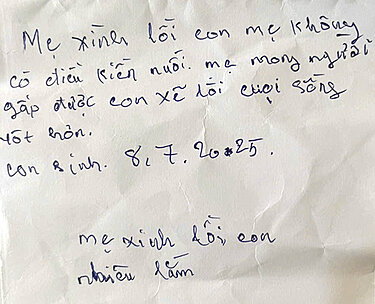 Mẹ xình lỗi con mẹ không
có điều kiến nuối. mẹ mong người
gấp được con xẽ lối cuọi sống
tốt hơn.
con sinh. 8. 7. 2025.
mẹ xinh lỗi con
nhiều lắm